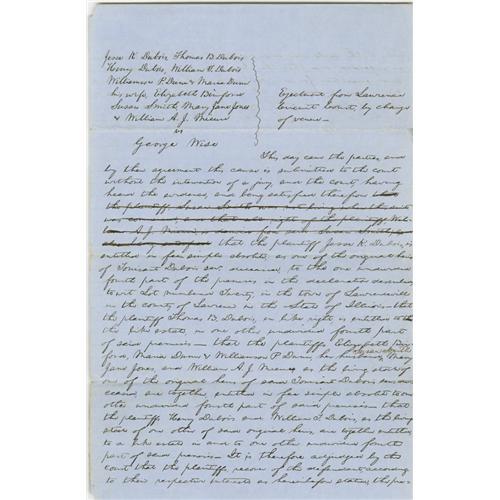 Jesse K. Dubois, Thomas B. Dubois
Henry Dubois, William S. Dubois
Williamson P. Dunn & Maria Dunn
his wife, Elizabeth Binford
Susan Smith, Mary Jane Jones
& William A. J. Mieure
vs
George Wise
Ejectment from Lawrence
Circuit Court, by change
of venue—
This day came the parties, and
by their agreement this cause is submitted to the court
without the intervention of a jury, and the court having
heard the evidence, and being satisfied therefrom
the plaintiff Susan Smith
was
A. J. Mieure
that the plaintiff Jesse K. Dubois, is
entitled in fee simple absolute, as one of the original heirs
of Toussaint Dubois Senr. deceased, to the one undivided
fourth part of the premises in the declaration described
to wit Lot numbered Twenty, in the town of Lawrenceville
in the county of Lawrence in the State of Illinois— that
the plaintiff Thomas B. Dubois, in like right is entitled to the
like estate, in one other undivided fourth part
of said premises— that the plaintiffs Elizabeth Bin-
ford, Maria Dunn & Williamson P. Dunn, her husband, Susan Smith Mary
Jane Jones, and William A. J. Mieure, as the heirs
of one of the original heirs of said Toussaint Dubois Senr. de-
ceased, are together entitled in fee simple absolute to one
other undivided fourth part of said premises— that
the plaintiffs Henry Dubois and William S. Dubois, as the heirs
of one other of said original heirs, are together entitled
to a like estate in and to one other undivided fourth
part of said premises— It is therefore adjudged by the
court that the plaintiffs recover of the defendant according
to their respective interests as herein before stated, the pre-